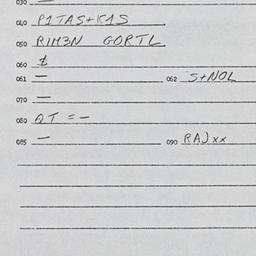 030 —
040 P1TAS+K1S
050 RIM3N GORTL
060 1
061 — 062 S+NOL
070 —
080 QT = -
085 — 090 RAJxx